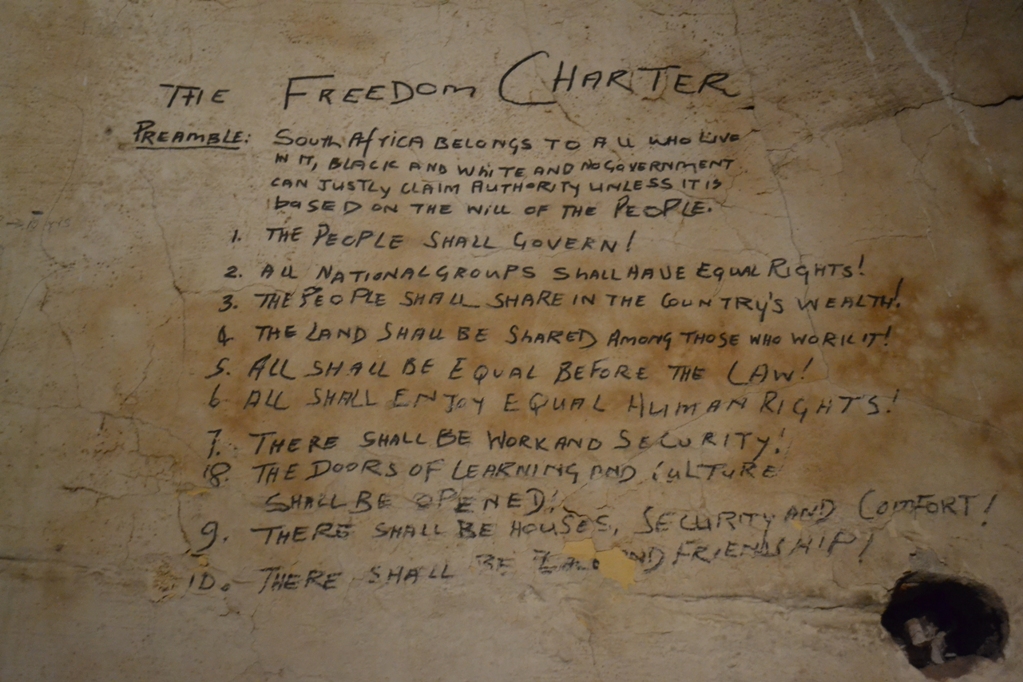 THE FREEDOM CHARTER
PREAMBLE: SOUTH AFRICA BELONGS TO ALL WHO LIVE
IN IT, BLACK AND WHITE AND NO GOVERNMENT
CAN JUSTLY CLAIM AUTHORITY UNLESS IT IS
BASED ON THE WILL OF THE PEOPLE.
1. THE PEOPLE SHALL GOVERN!
2. ALL NATIONAL GROUPS SHALL HAVE EQUAL RIGHTS!
3. THE PEOPLE SHALL SHARE IN THE COUNTRY'S WEALTH!
4 THE LAND SHALL BE SHARED AMONG THOSE WHO WORK IT!
5. ALL SHALL BE EQUAL BEFORE THE LAW!
6. ALL SHALL ENJOY EQUAL HUMAN RIGHTS!
7. THERE SHALL BE WORK AND SECURITY!
8. THE DOORS OF LEARNING AND CULTURE
SHALL BE OPENED!
9. THERE SHALL BE HOUSES, SECURITY AND COMFORT!
10. THERE SHALL BE ND FRIENDSHIP!